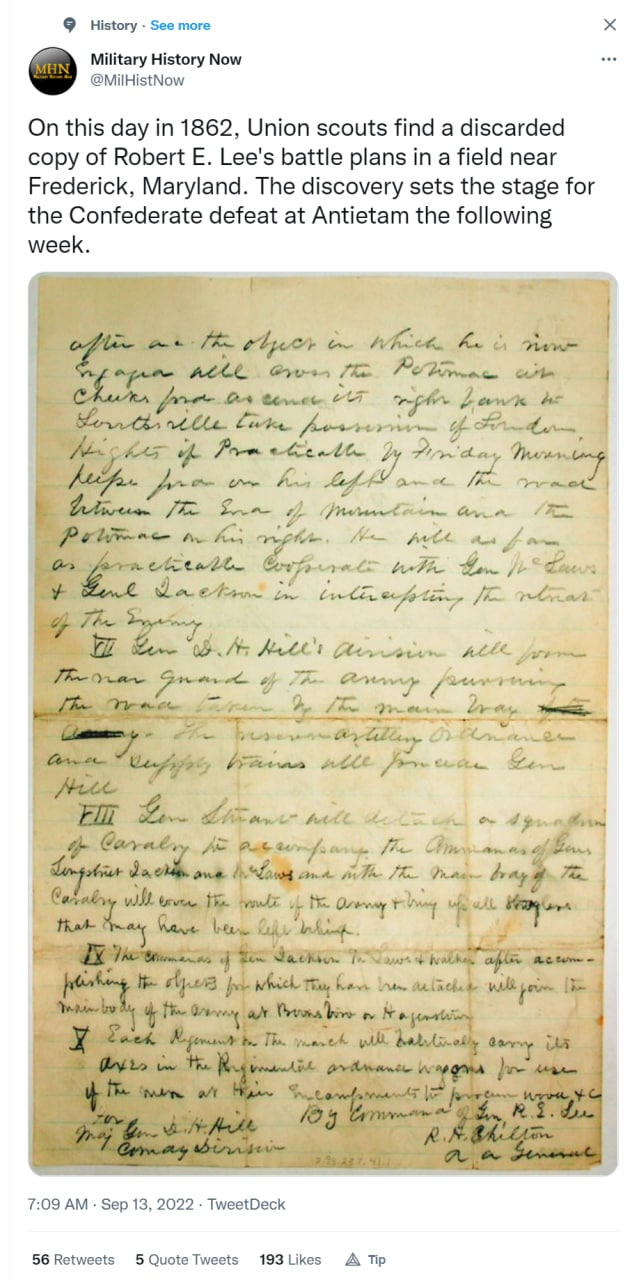 History · See more
Military History Now
@MilHistNow
On this day in 1862, Union scouts find a discarded
copy of Robert E. Lee's battle plans in a field near
Frederick, Maryland. The discovery sets the stage for
the Confederate defeat at Antietam the following
week.
after the object in which he is now
Engaged will cross the Potomac at
Cheeks ford ascend its right bank to
take possession of Loudon
Hights if Practicable by Friday Morning
Keeps ford on his left and the road
between the End of Mountain and the
Potomac on his right. He will as far
as practicable Cooperate with Gen McLaws
& Genl Jackson in intercepting the retreat
of the Enemy
VII Gen D. H. Hill's division will form
the rear guard of the army pursuing
the road taken by the main body
The reserve artillery Ordnance
and supply trains will precede Gen
Hill
VIII Gen Stuart will detach a squadron
of Cavalry to accompany the Commands of Gens
Longstreet Jackson and McLaws and with the main body of the
Cavalry will cover the route of the army & bring up all stragglers
that may have been left behind.
IX The commands of Gen Jackson McLaws & Walker after accom-
plishing the objects for which they have been detached will join the
main body of the army at Boonsboro or Hagerstown
X Each Regiment on the march will habitually carry its
axes in the Regimental ordnance wagons for use
of the men at their Encampments to procure wood &c
By Command of Gen R. E. Lee
For
Maj Gen D. H. Hill
R. H. Chilton
Comdg Division
A A General
7:09 AM · Sep 13, 2022 · TweetDeck
56 Retweets 5 Quote Tweets 193 Likes Tip